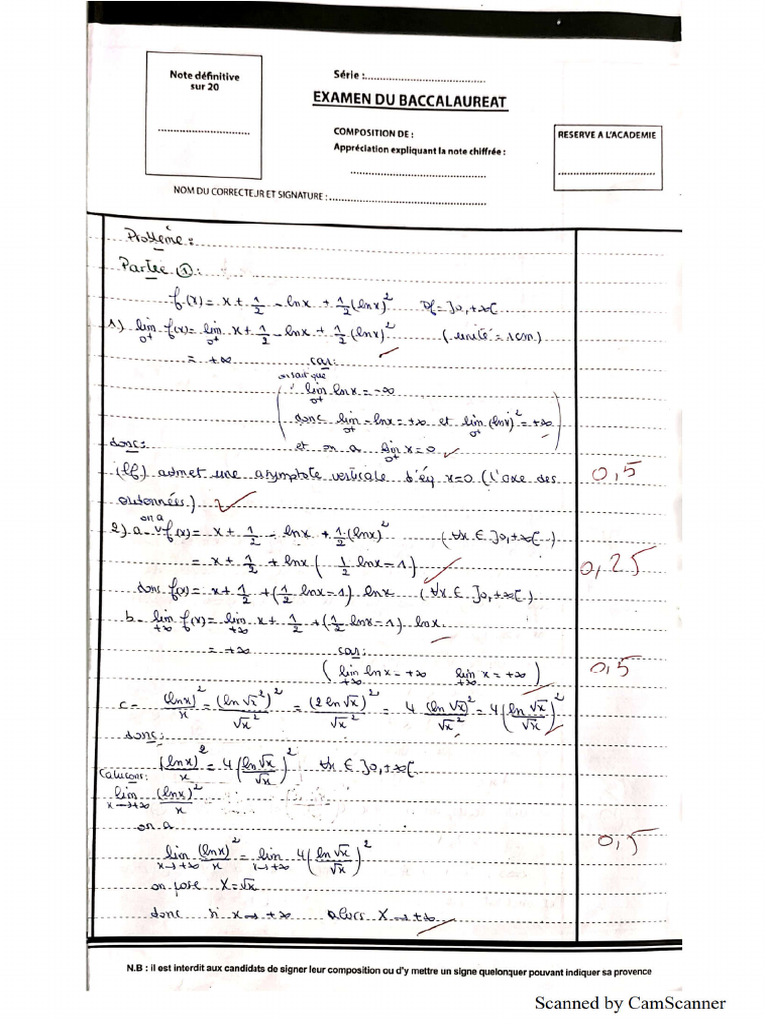 Note définitive
sur 20
Série :
EXAMEN DU BACCALAUREAT
COMPOSITION DE :
Appréciation expliquant la note chiffrée :
RESERVE A L'ACADEMIE
NOM DU CORRECTEUR ET SIGNATURE :
Problème :
Partie ① :
f(x) = x + 1/2 - lnx + 1/2 (lnx)² Df = ]0,+∞[
1) lim 0+ f(x) = lim 0+ x + 1/2 - lnx + 1/2 (lnx)² (unité = 1cm)
= +∞ car:
on sait que
lim 0+ lnx = -∞
donc lim 0+ -lnx = +∞ et lim 0+ (lnx)² = +∞
et on a lim 0+ x = 0
donc:
(Cf) admet une asymptote verticale d'éq x=0 (l'axe des 0,5
ordonnées)
2) a- on a f(x) = x + 1/2 - lnx + 1/2 (lnx)² (∀x ∈ ]0,+∞[)
= x + 1/2 + lnx (1/2 lnx - 1) 0,25
donc f(x) = x + 1/2 + (1/2 lnx - 1) lnx (∀x ∈ ]0,+∞[)
b- lim +∞ f(x) = lim +∞ x + 1/2 + (1/2 lnx - 1) lnx
= +∞ car:
(lim +∞ lnx = +∞ lim +∞ x = +∞) 0,5
c- (lnx)²/x = (ln √x²)²/√x² = (2 ln √x)²/√x² = 4 (ln √x)²/√x² = 4 (ln √x/√x)²
donc:
(lnx)²/x = 4 (ln √x/√x)² ∀x ∈ ]0,+∞[
Calculons:
lim x→+∞ (lnx)²/x
on a 0,5
lim x→+∞ (lnx)²/x = lim x→+∞ 4 (ln √x/√x)²
on pose X = √x
donc si x→+∞ alors X→+∞
N.B : il est interdit aux candidats de signer leur composition ou d'y mettre un signe quelonquer pouvant indiquer sa provence
Scanned by CamScanner